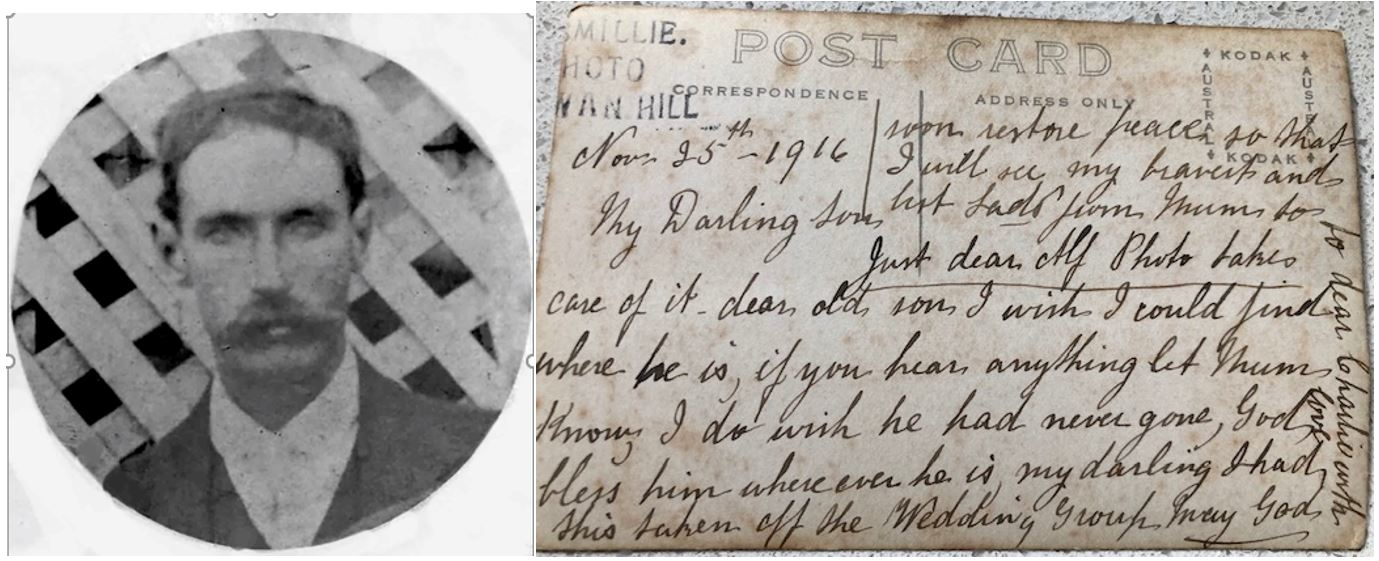 MILLIE.
HOTO
WAN HILL
POST CARD
CORRESPONDENCE
ADDRESS ONLY
KODAK
AUSTRAL
AUSTRA
KODAK
Nov 25th - 1916
My Darling son
Just dear Alf Photo take
care of it dear old son I wish I could find
where he is, if you hear anything let Mum
Know, I do wish he had never gone, God
bless him where ever he is, my darling I had
this taken off the Wedding Group May God
soon restore peace so that
I will see my bravest and
best lads from Mum to
to dear Charlie with
love